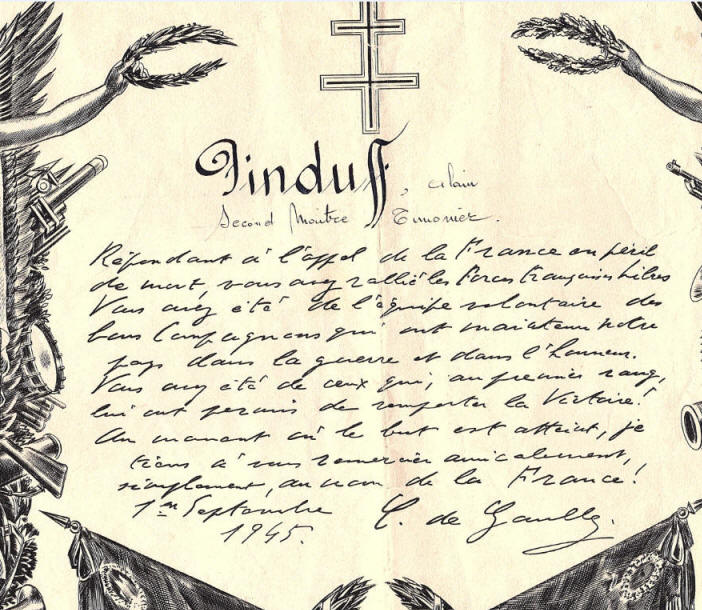 Pinduff, Alain
Second Maître Timonier.
Répondant à l'appel de la France en péril
de mort, vous avez rallié les Forces Françaises Libres
Vous avez été de l'équipe volontaire des
bons Compagnons qui ont maintenu notre
pays dans la guerre et dans l'honneur.
Vous avez été de ceux qui, au premier rang,
lui ont permis de remporter la Victoire!
Au moment où le but est atteint, je
tiens à vous remercier amicalement,
simplement, au nom de la France!
1er Septembre C. de Gaulle.
1945.